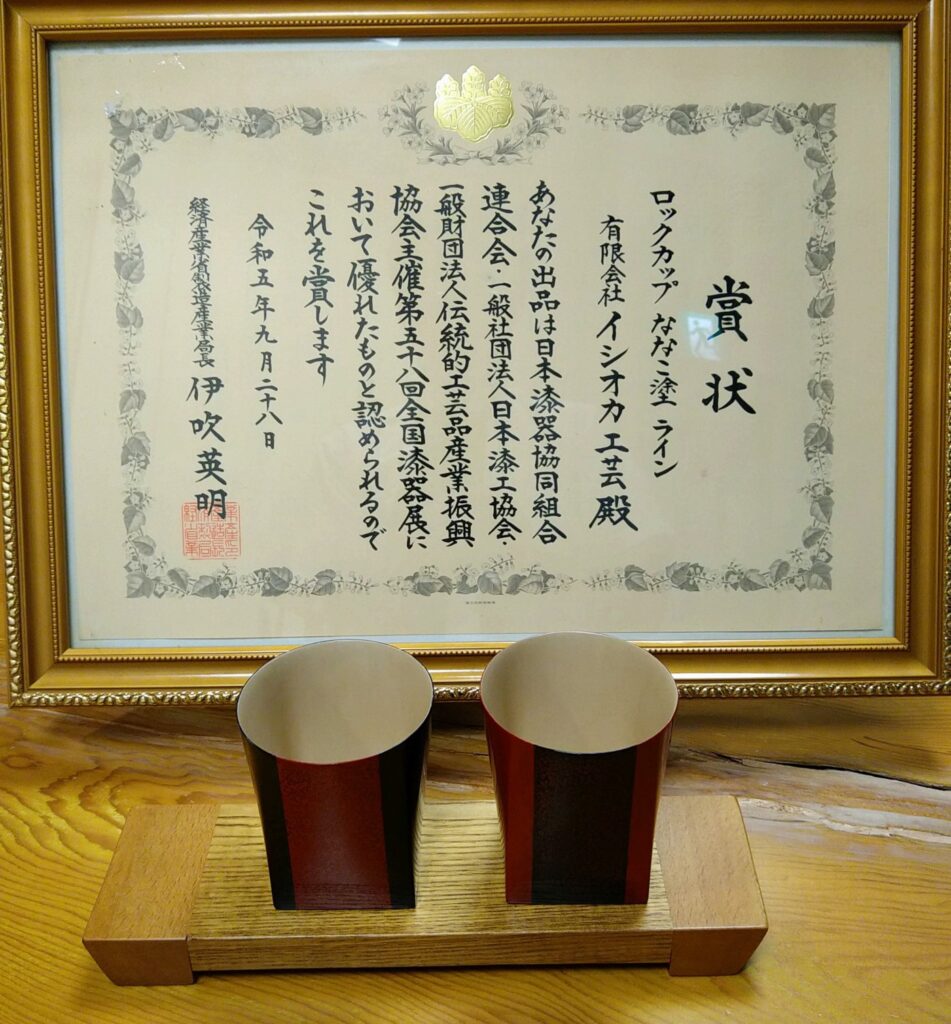 賞状
ロックカップ ななこ塗 ライン
有限会社 イシオカ工芸殿
あなたの出品は日本漆器協同組合
連合会・一般社団法人日本漆工協会・
一般財団法人伝統的工芸品産業振興
協会主催第五十八回全国漆器展に
おいて優れたものと認められるので
これを賞します
令和五年九月二十八日
経済産業省製造産業局長 伊吹英明